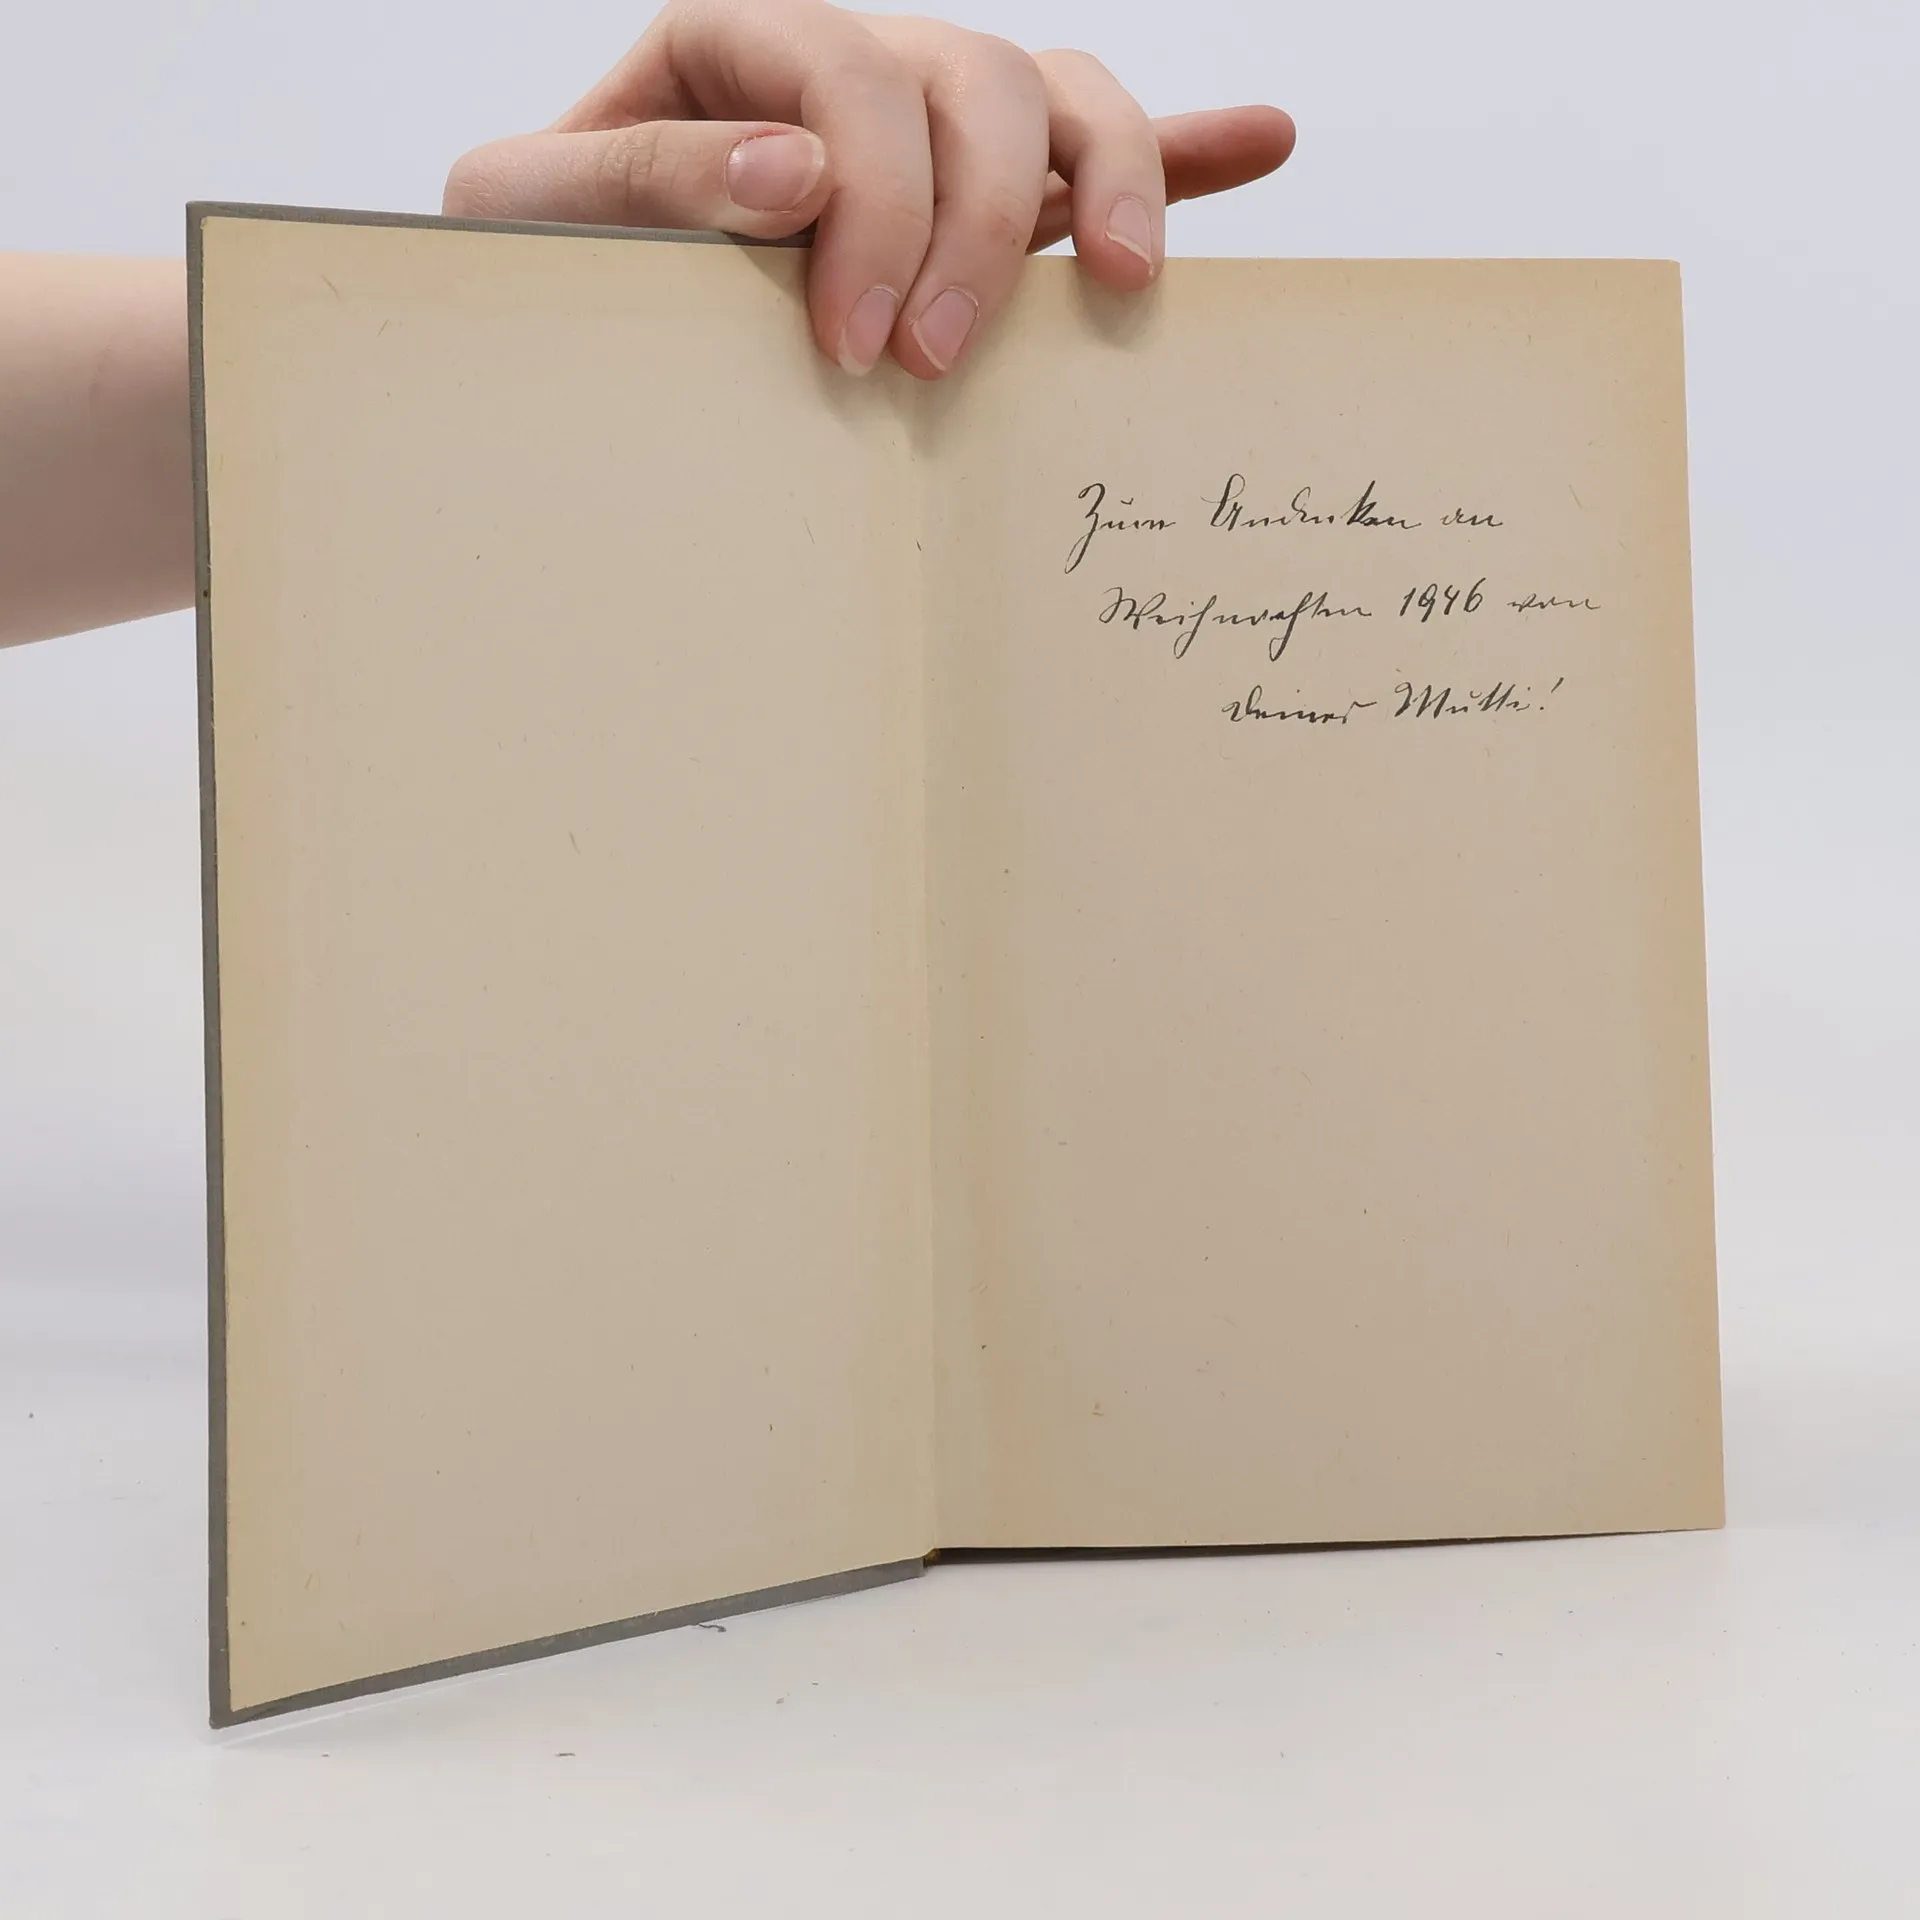 Zum Andenken an
Weihnachten 1946 von
Deiner Mutti!